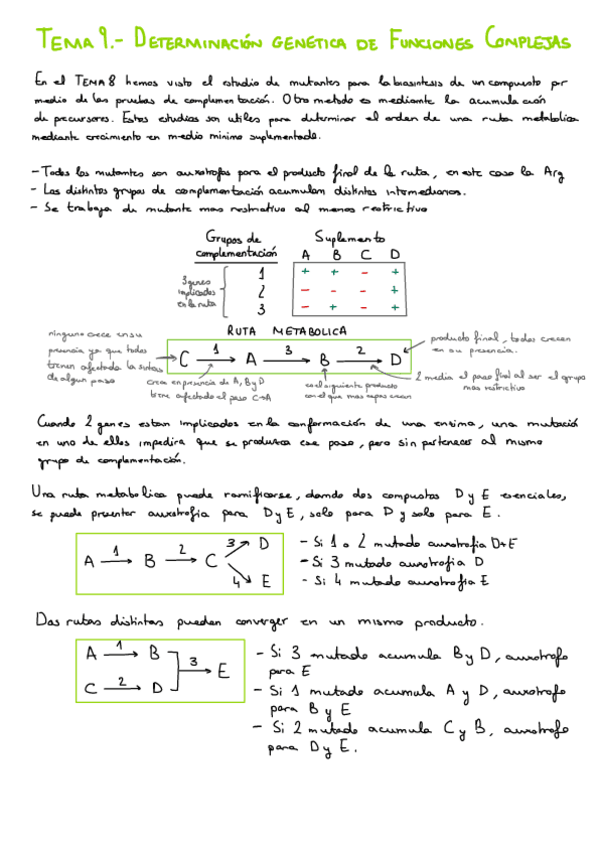 TEMA 9.- DETERMINACIÓN GENÉTICA DE FUNCIONES COMPLEJAS
En el TEMA 8 hemos visto el estudio de mutantes para la biosintesis de un compuesto por
medio de las pruebas de complementación. Otro metodo es mediante la acumulación
de precursores. Estos estudios son utiles para determinar el orden de una ruta metabolica
mediante crecimiento en medio minimo suplementado.
- Todos los mutantes son auxotrofos para el producto final de la ruta, en este caso la Arg
- Los distintos grupos de complementación acumulan distintos intermediarios.
- Se trabaja de mutante mas restrictivo al menos restrictivo
Grupos de complementación
Suplemento
A B C D
1 + + - +
2 - - - +
3 - + - +
3 genes
implicados
en la ruta
RUTA METABOLICA
ninguno crece en su
presencia ya que todos
tienen afectada la
de algun paso
C 1 A 3 B 2 D
producto final, todos crecen
en su presencia.
crece en presencia de A, B y D
tiene afectado el paso C→A
es el siguiente producto
con el que mas cepas crecen
2 media el paso final al ser el grupo
mas restrictivo
Cuando 2 genes estan implicados en la conformación de una enzima, una mutación
en uno de ellos impedira que se produzca ese paso, pero sin pertenecer al mismo
grupo de complementación.
Una ruta metabolica puede ramificarse, dando dos compuestos D y E esenciales,
se puede presentar auxotrofia para D y E, solo para D y solo para E.
A 1 B 2 C 3 D
4 E
- Si 1 o 2 mutado auxotrofia D+E
- Si 3 mutado auxotrofia D
- Si 4 mutado auxotrofia E
Dos rutas distintas pueden converger en un mismo producto.
A 1 B
3 E
C 2 D
- Si 3 mutado acumula B y D, auxotrofo
para E
- Si 1 mutado acumula A y D, auxotrofo
para B y E
- Si 2 mutado acumula C y B, auxotrofo
para D y E.